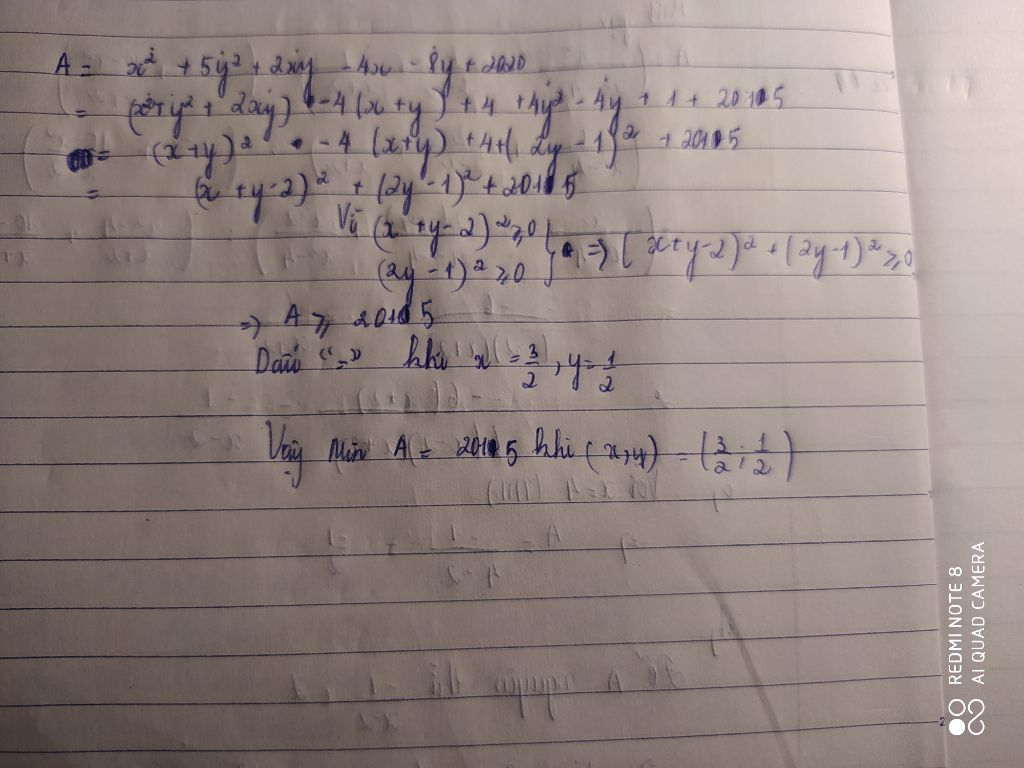 A = x² + 5y² + 2xy - 4x - 8y + 2020
= (x² + y² + 2xy) - 4(x+y) + 4 + 4y² - 4y + 1 + 2015
= (x+y)² - 4 (x+y) + 4 + (2y - 1)² + 2015
= (x + y - 2)² + (2y - 1)² + 2015
Vì (x + y - 2)² ≥ 0
(2y - 1)² ≥ 0 } => (x+y-2)² + (2y-1)² ≥ 0
=> A ≥ 2015
Dấu "=" khi x = 3/2, y = 1/2
Vậy Min A = 2015 khi (x,y) = (3/2; 1/2)
REDMI NOTE 8
AI QUAD CAMERA